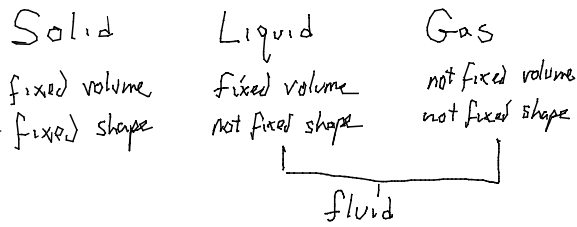 Solid
fixed volume
fixed shape
Liquid
fixed volume
not fixed shape
Gas
not fixed volume
not fixed shape
fluid